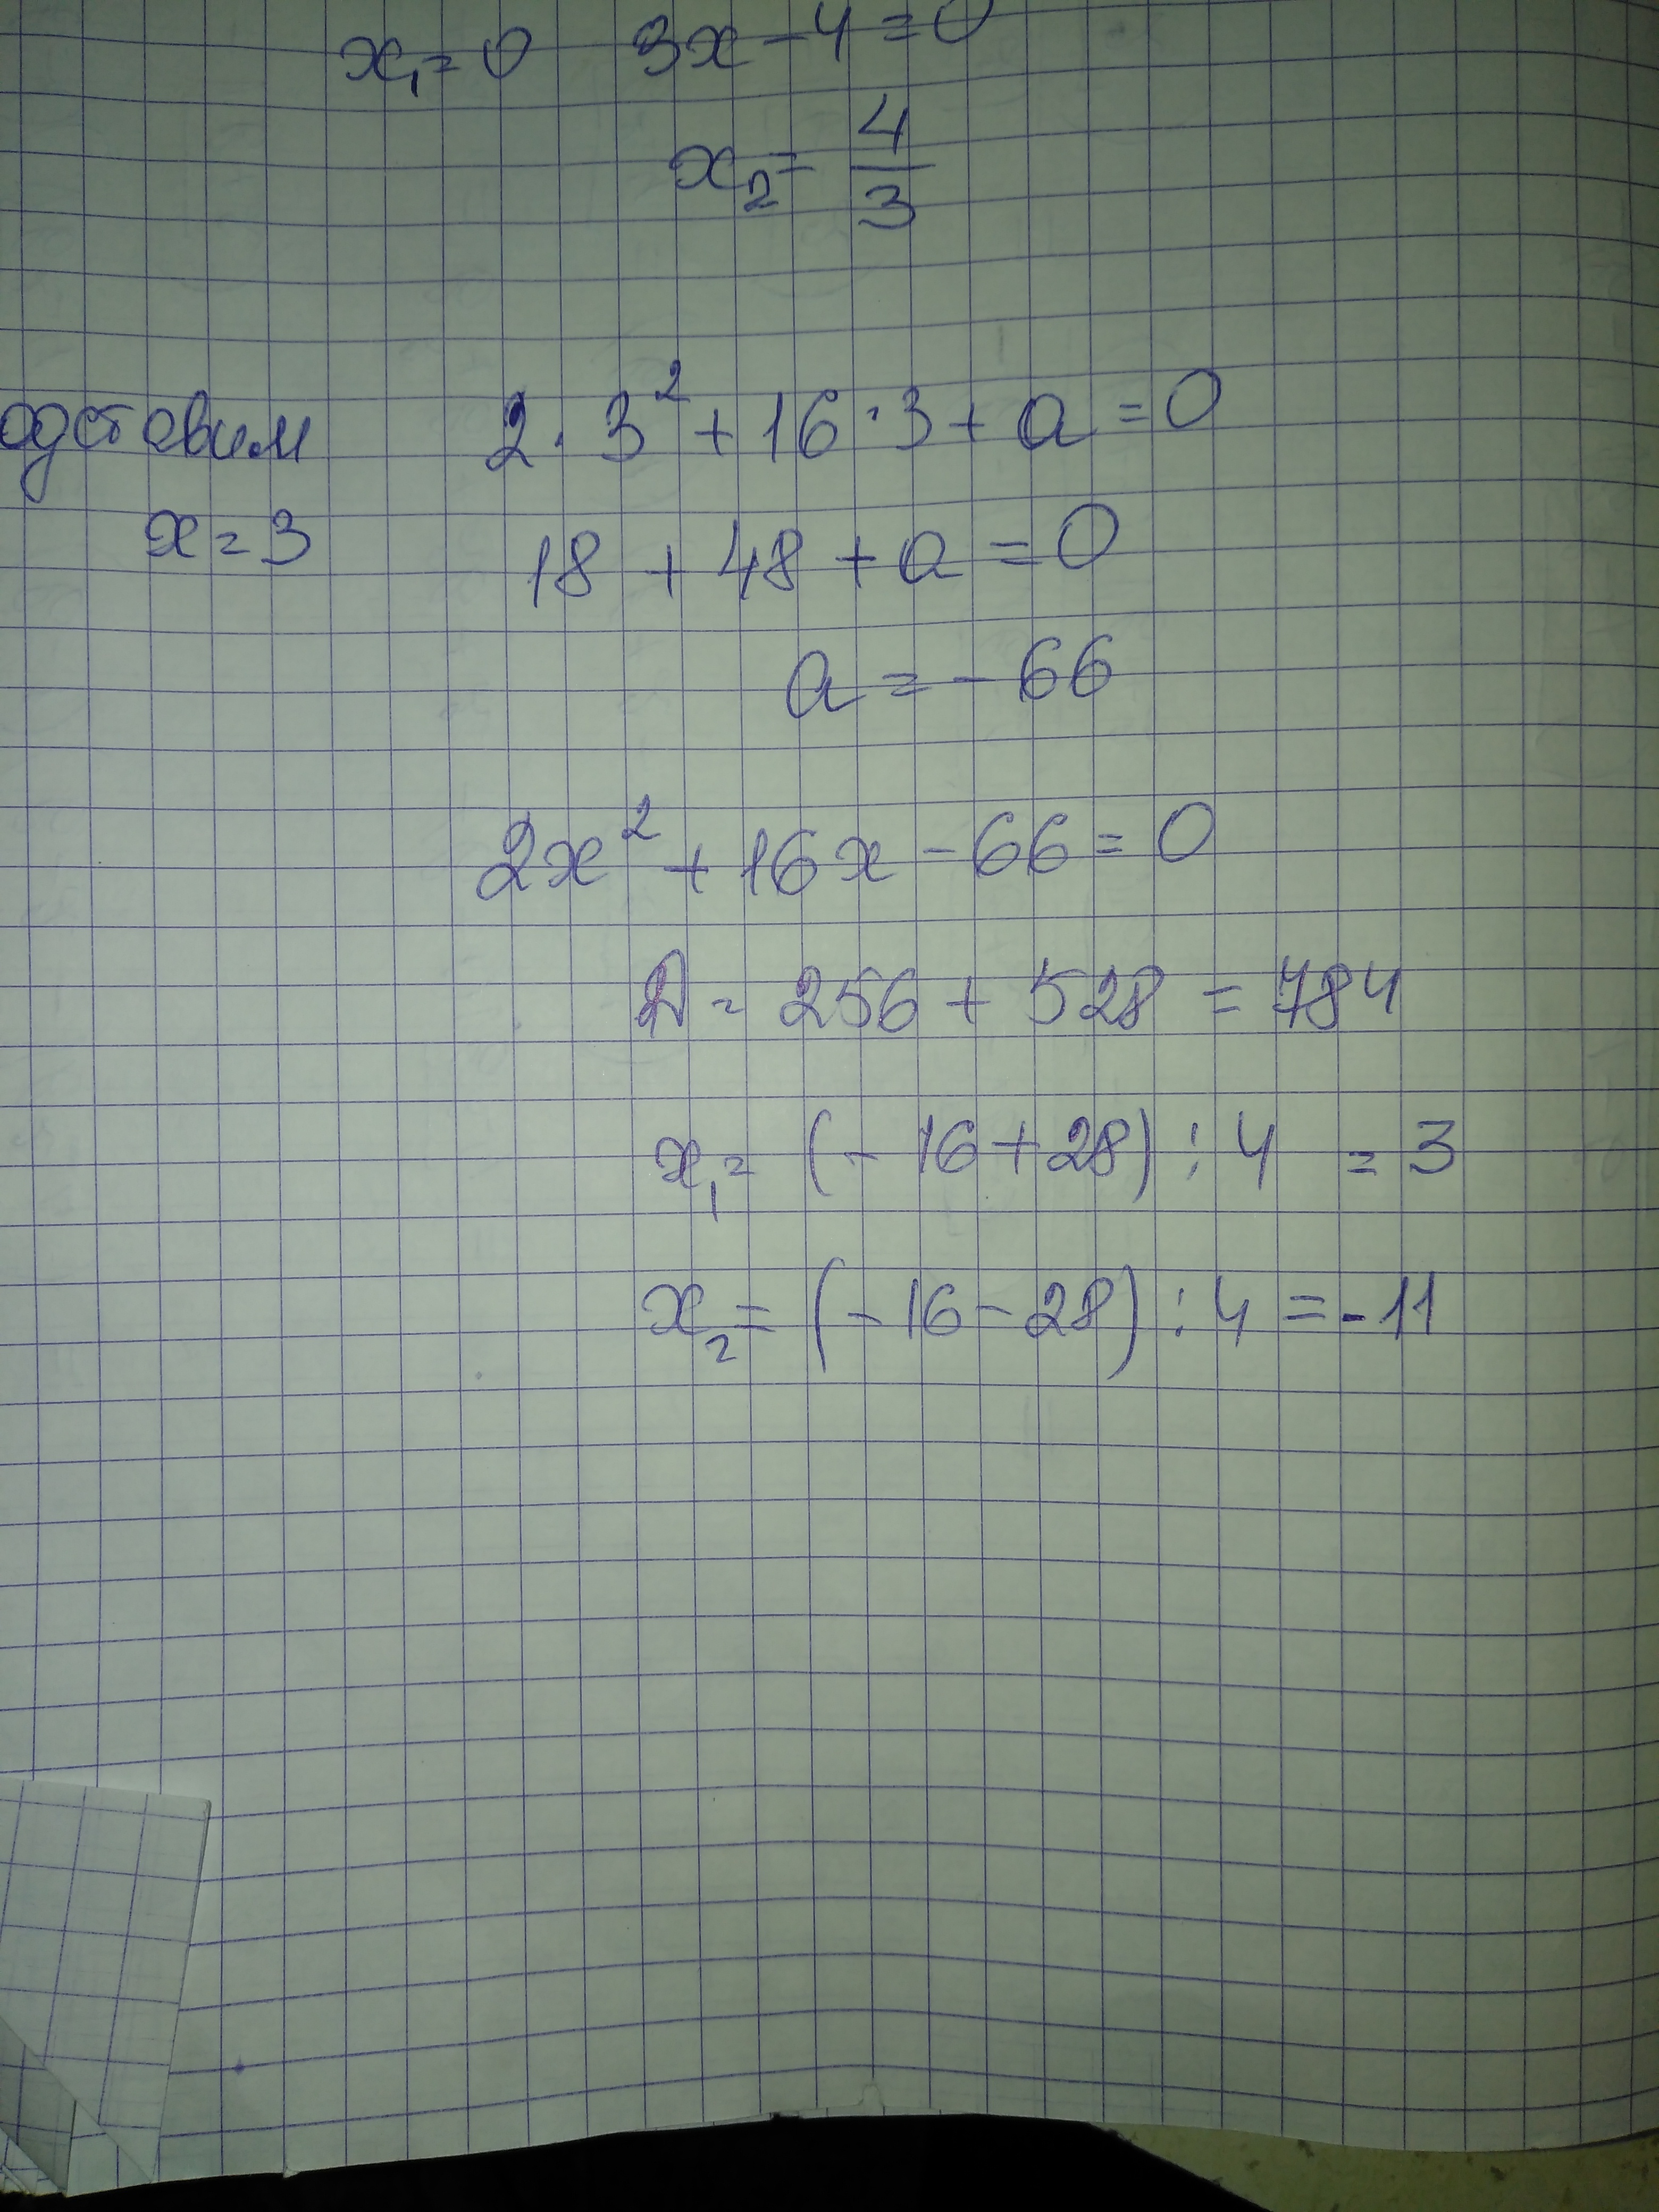 x₁ = 0 3x - 4 = 0
x₂ = 4/3
одставим 2 · 3² + 16 · 3 + a = 0
x = 3 18 + 48 + a = 0
a = - 66
2x² + 16x - 66 = 0
D = 256 + 528 = 784
x₁ = (- 16 + 28) : 4 = 3
x₂ = (- 16 - 28) : 4 = - 11